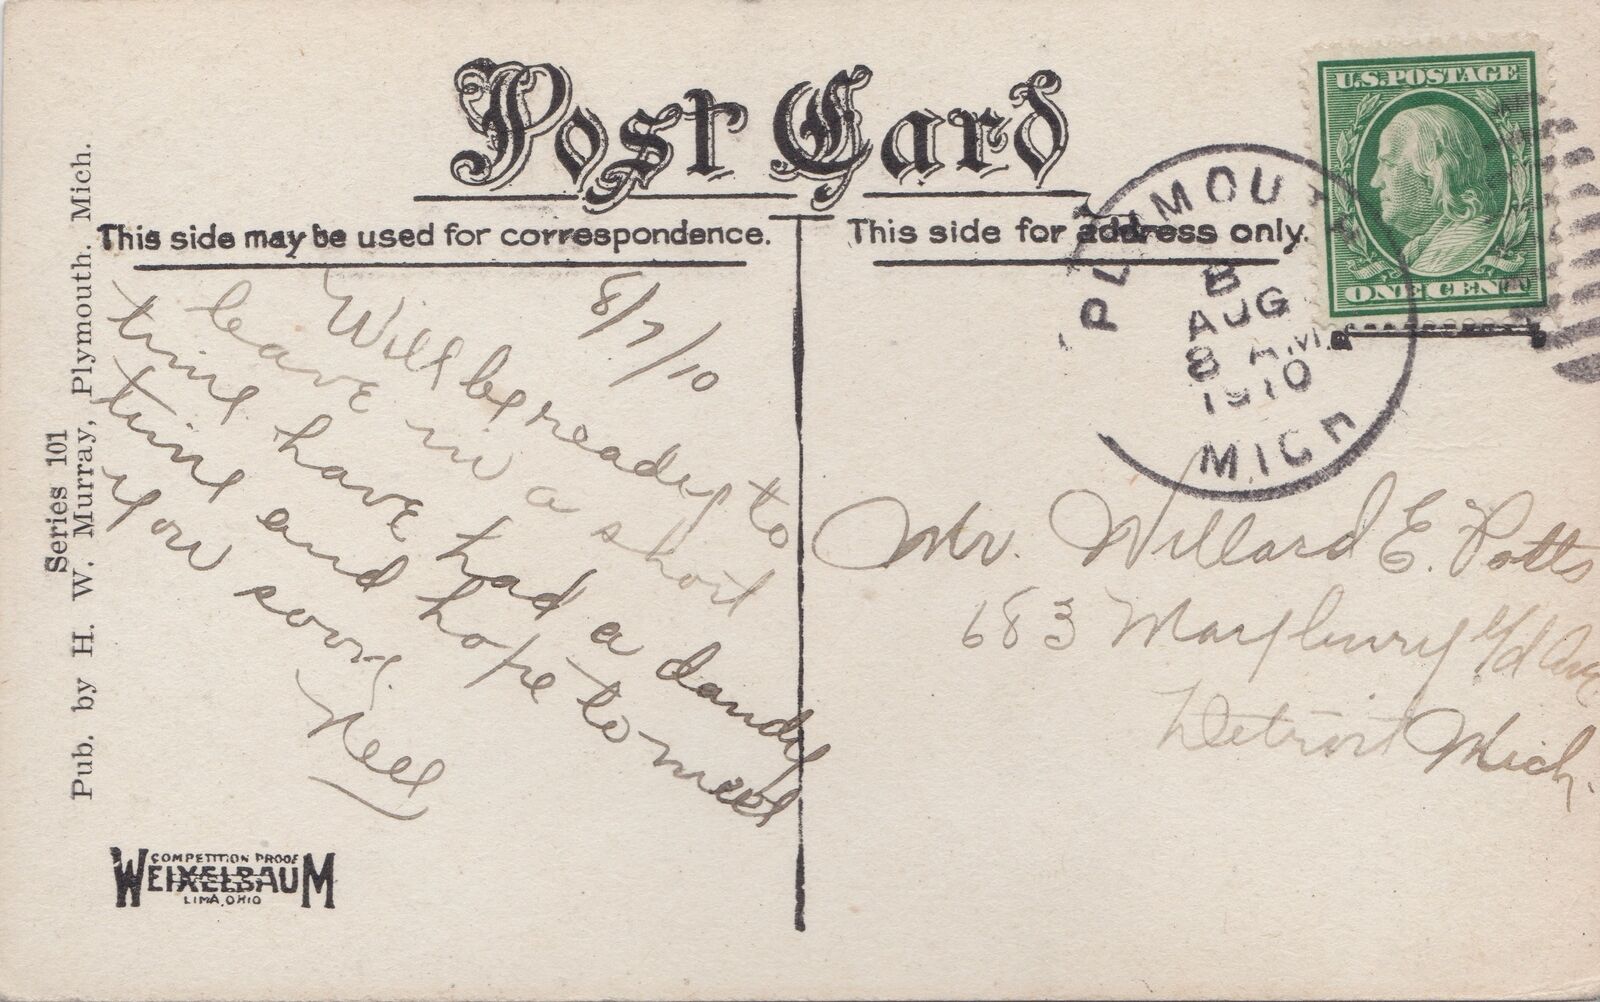 Post Card
This side may be used for correspondence.
This side for address only.
U.S. POSTAGE
ONE CENT
PLYMOUTH
B
AUG
8 AM
1910
MICH
8/7/10
Will be ready to
leave in a short
time have had a dandy
time and hope to meet
you soon.
Nell
Mr. Willard E. Potts
683 Maybury Ave
Detroit Mich.
Series 101
Pub. by H. W. Murray, Plymouth. Mich.
COMPETITION PROOF
WEIXELBAUM
LIMA, OHIO